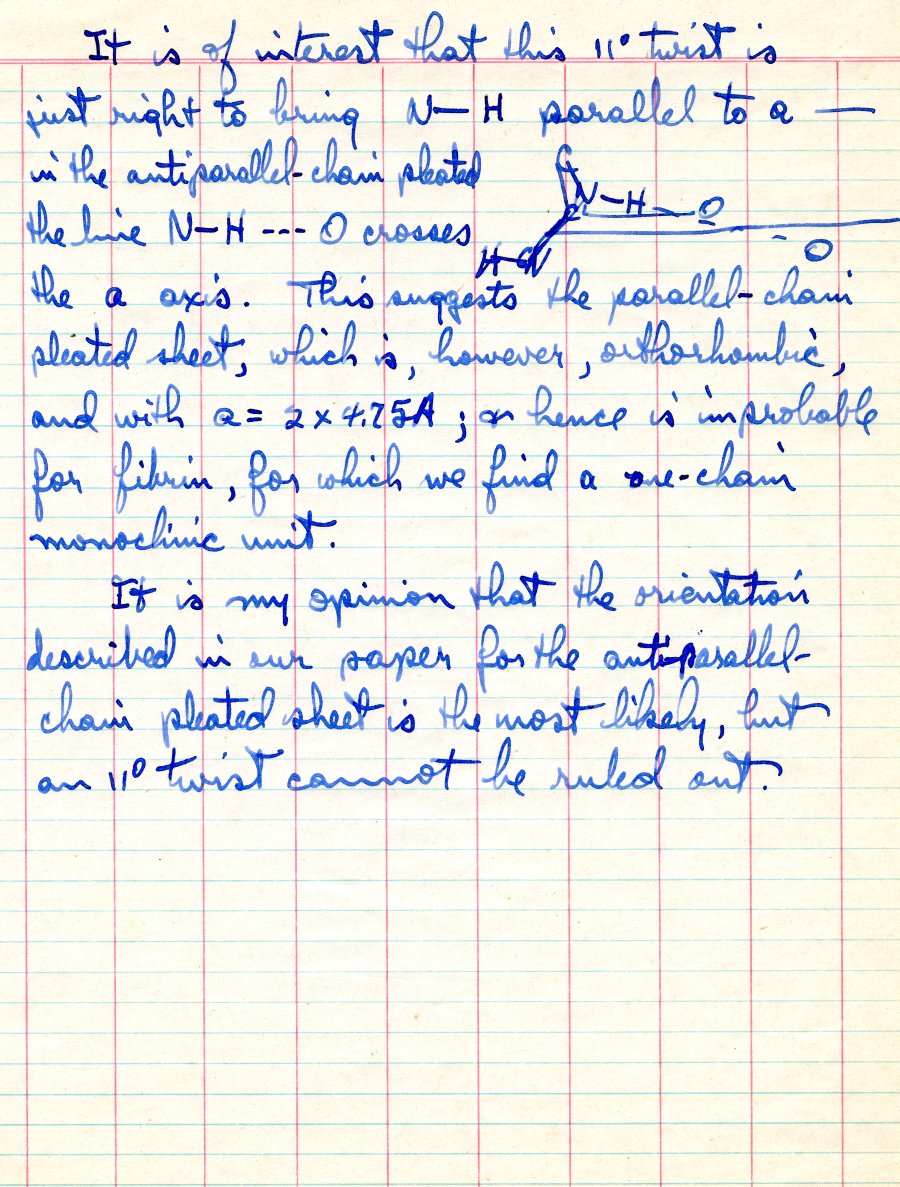 It is of interest that this 11° twist is
just right to bring N—H parallel to a —
in the antiparallel-chain pleated
the line N–H --- O crosses
C
N–H–O
C
O
H–N
the a axis. This suggests the parallel-chain
pleated sheet, which is, however, orthorhombic,
and with a = 2 x 4.75A ; hence is improbable
for fibrin, for which we find a one-chain
monoclinic unit.
It is my opinion that the orientation
described in our paper for the antiparallel-
chain pleated sheet is the most likely, but
an 11° twist cannot be ruled out.